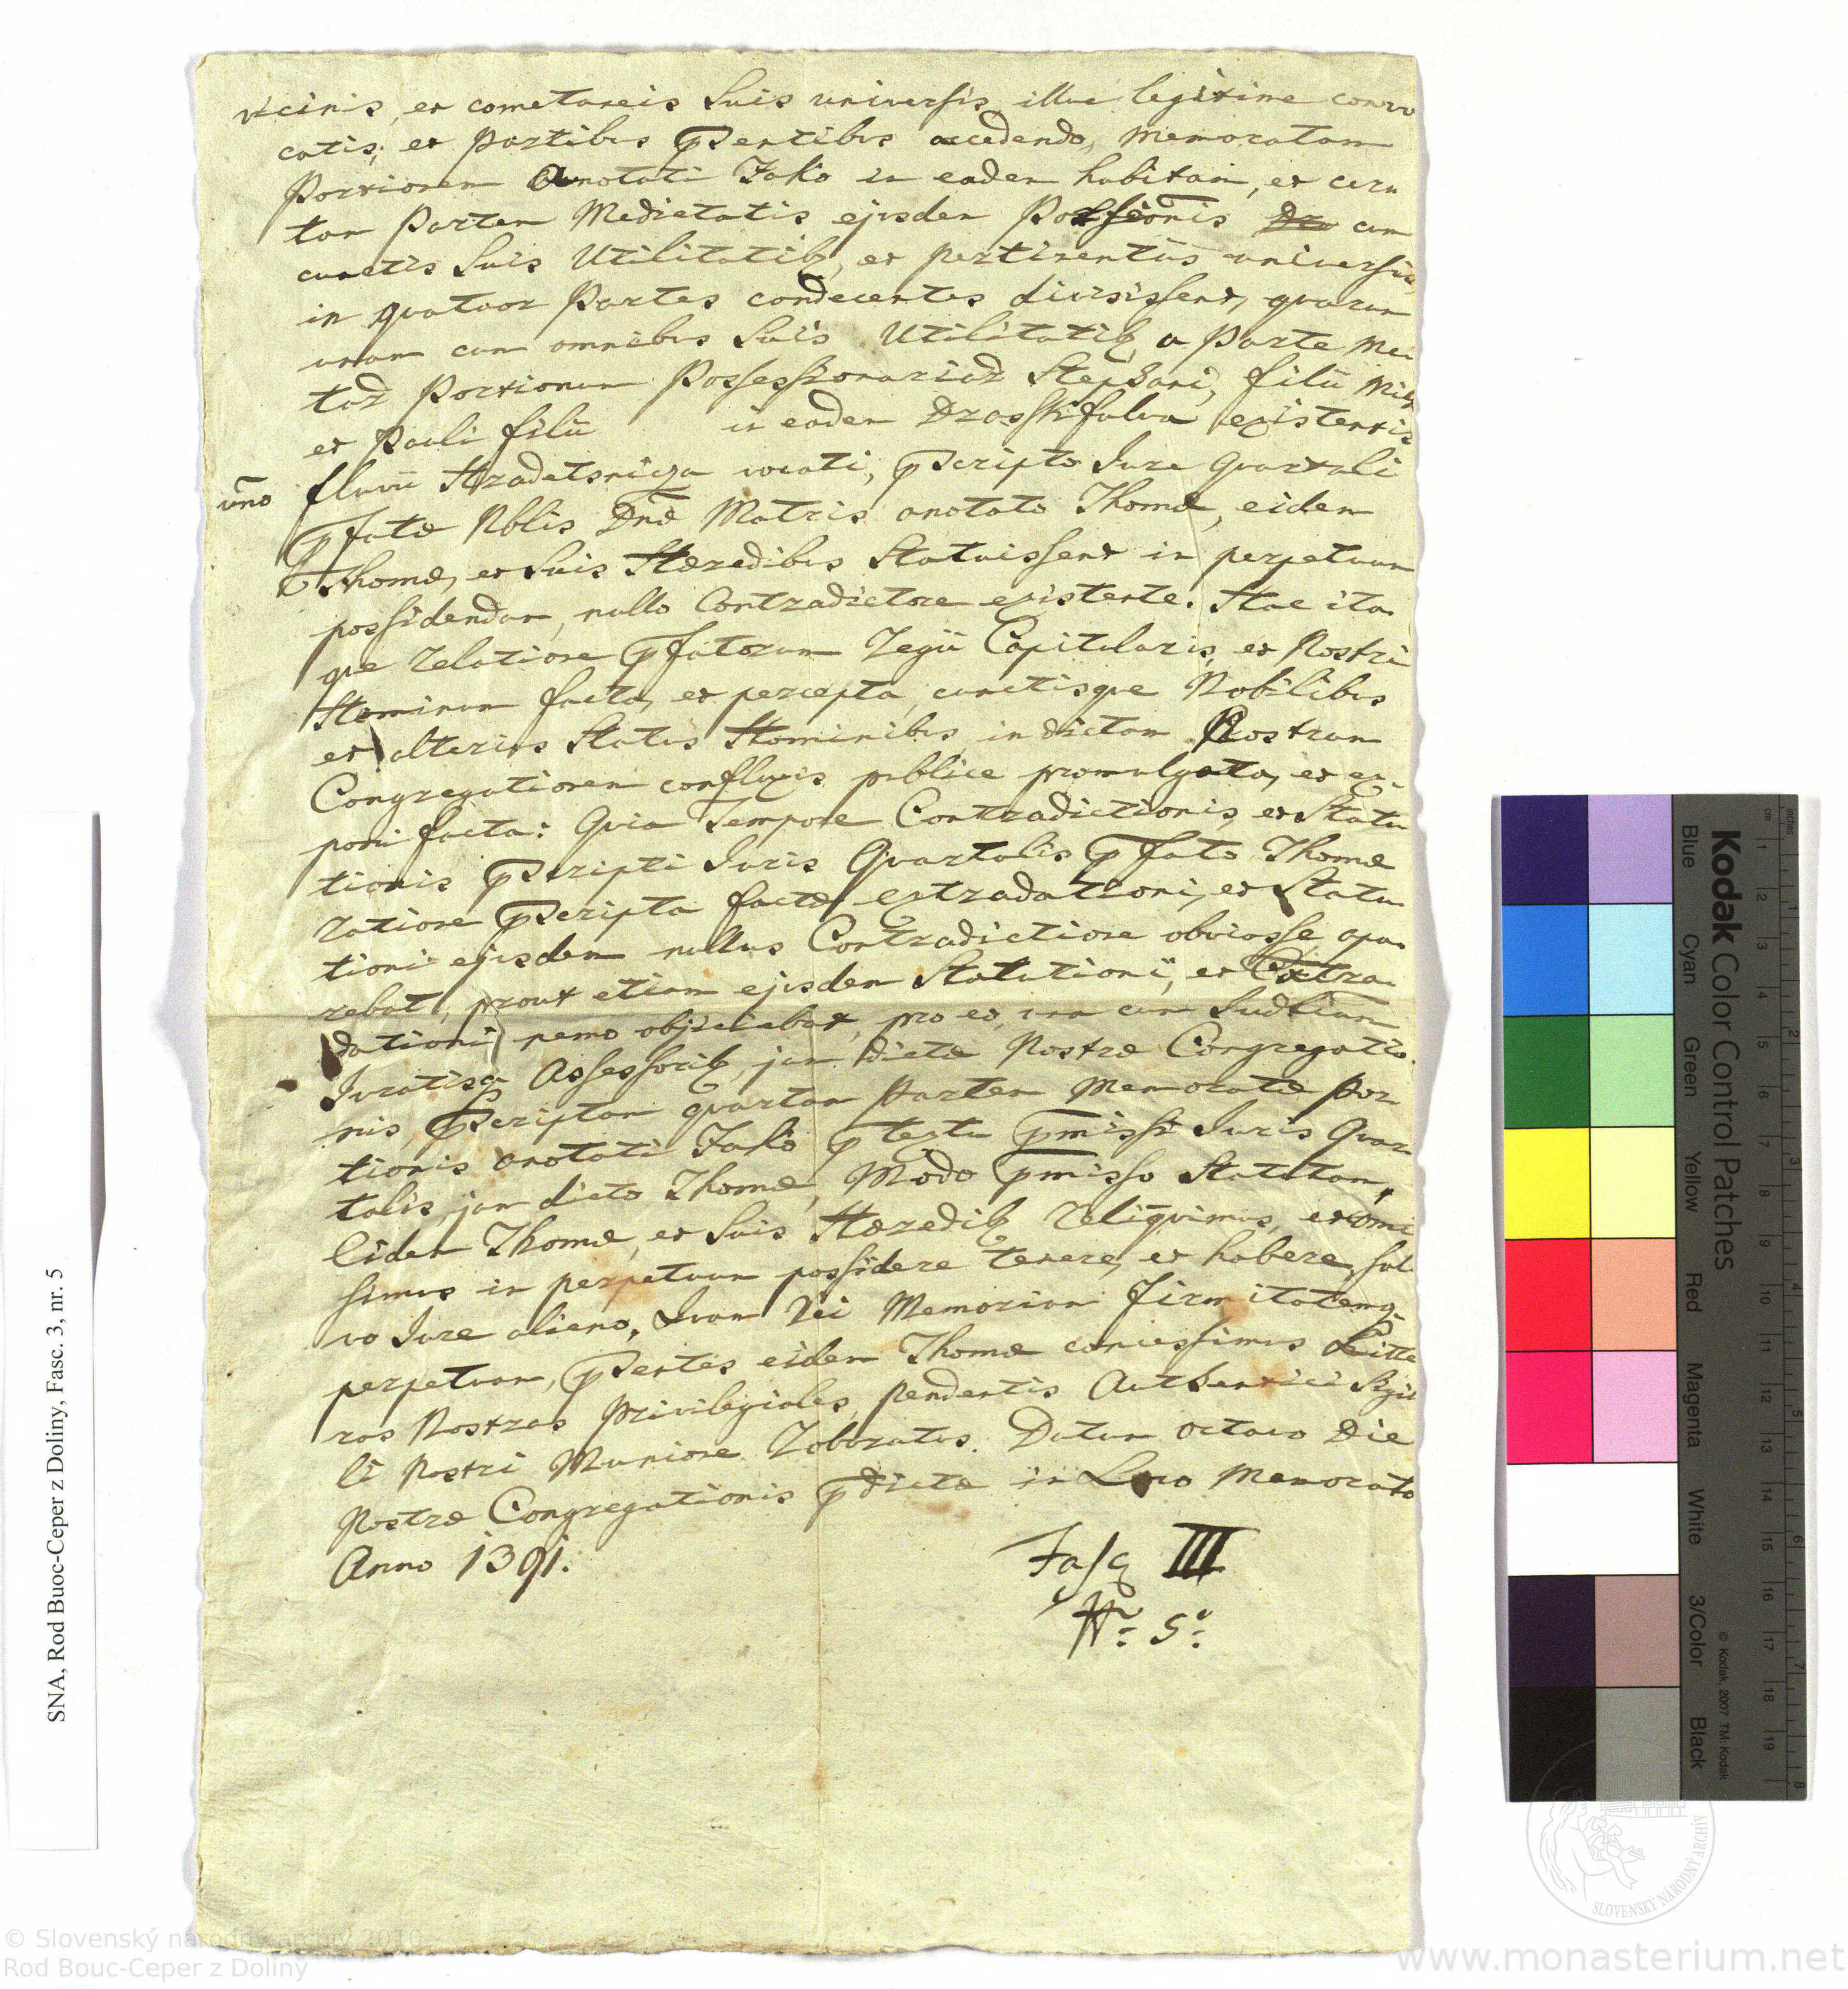 vicinis, et cometaneis Suis universis illuc legitime convo
catis; et Partibus pSentibus accedendo, Memoratam
Portionem Anotati Jako in eadem habitam, et cern
tam Partem Medietatis ejusdem Possionis cum
cunctis Suis Utilitatib, et pertinentiis universis
in quatuor Partes condecentes divisissent, quarum
unam cum omnibus Suis Utilitatib a Parte Me
tar Portionum Possessionariar Stephani, filii Mich
et Pauli filii in eadem Drassifalva existentis
uno fluvii Hradetsnicza vocati, pScripto Jure Quartali
pfatae Nblis Dnae Matris anotato Thomae, eidem
Thomae, et Suis Haeredibus Statuissent in perpetuum
possidendam, nullo Contradictore existente. Hac ita
que relatione pfatorum Regii Capitularis, et Nostri
Hominum facta, et percepta, cunctisque Nobilibus
et alterius Status Hominibus in dictam Nostram
Congregationem confluxis publice promulgata, et ex-
poni facta: Quia Tempore Contradictionis, et Statu
tionis pScripti Juris Quartalis pfato Thomae
ratione pScripta factae extradationi, et Statu
tioni ejusdem nullus Contradictione obviasse apa
rebat, prout etiam ejusdem Statutioni, et Extra
dationi nemo objiciebat, pro eo, una cum Judlium
Juratisq Assessorib, jam dictae Nostrae Congregatio
nis pScriptam quartam Partem Memoratae Por
tionis anotati Jako p textu pmissi Juris Quar
talis, jam dicto Thomae, Modo pmisso Statutam,
Eidem Thomae, et Suis Haeredib reliquimus, et comi
simus in perpetuum possidere tenere, et habere, sal
vo Jure alieno, Quam Rei Memoriam firmitatemq
perpetuam, pSentes eidem Thomae concessimus Litte
ras Nostras Privilegiales, pendentis Authentici Sigil
li Nostri Munione roboratas. Datum octavo Die
Nostrae Congregationis pdictae in Loco Memorato
Anno 1391.
Fasc III
Nr. 5.
SNA, Rod Buoc-Ceper z Doliny, Fasc. 3, nr. 5
Kodak Color Control Patches
Blue Cyan Green Yellow Red Magenta White 3/Color Black
© Kodak, 2007 TM: Kodak
cm 1 2 3 4 5 6 7 8 9 10 11 12 13 14 15 16 17 18 19
inches 1 2 3 4 5 6 7 8
SLOVENSKÝ NÁRODNÝ ARCHÍV
© Slovenský národný archív 2010
Rod Bouc-Ceper z Doliny
www.monasterium.net